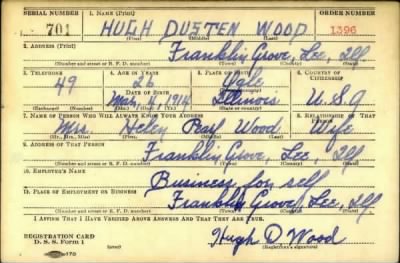 SERIAL NUMBER 1. NAME (Print) ORDER NUMBER
701 HUGH DUSTEN WOOD 1396
2. ADDRESS (Print)
Franklin Grove, Lee, Ill
(Number and street or R. F. D. number) (Town) (County) (State)
3. TELEPHONE 4. AGE IN YEARS 5. PLACE OF BIRTH 6. COUNTRY OF CITIZENSHIP
49 26
DATE OF BIRTH
Mar. 1914 Illinois U.S.A
(Exchange) (Number) (Mo.) (Day) (Yr.) (State or country)
7. NAME OF PERSON WHO WILL ALWAYS KNOW YOUR ADDRESS 8. RELATIONSHIP OF THAT PERSON
Mrs. Helen Wood Wife
(Mr., Mrs., Miss) (First) (Middle) (Last)
9. ADDRESS OF THAT PERSON
Franklin Grove, Lee, Ill
(Number and street or R. F. D. number) (Town) (County) (State)
10. EMPLOYER'S NAME
Business for self
11. PLACE OF EMPLOYMENT OR BUSINESS
Franklin Grove, Lee, Ill.
(Number and street or R. F. D. number) (Town) (County) (State)
I AFFIRM THAT I HAVE VERIFIED ABOVE ANSWERS AND THAT THEY ARE TRUE.
REGISTRATION CARD
D. S. S. Form 1 Hugh D. Wood
(Registrant's signature)